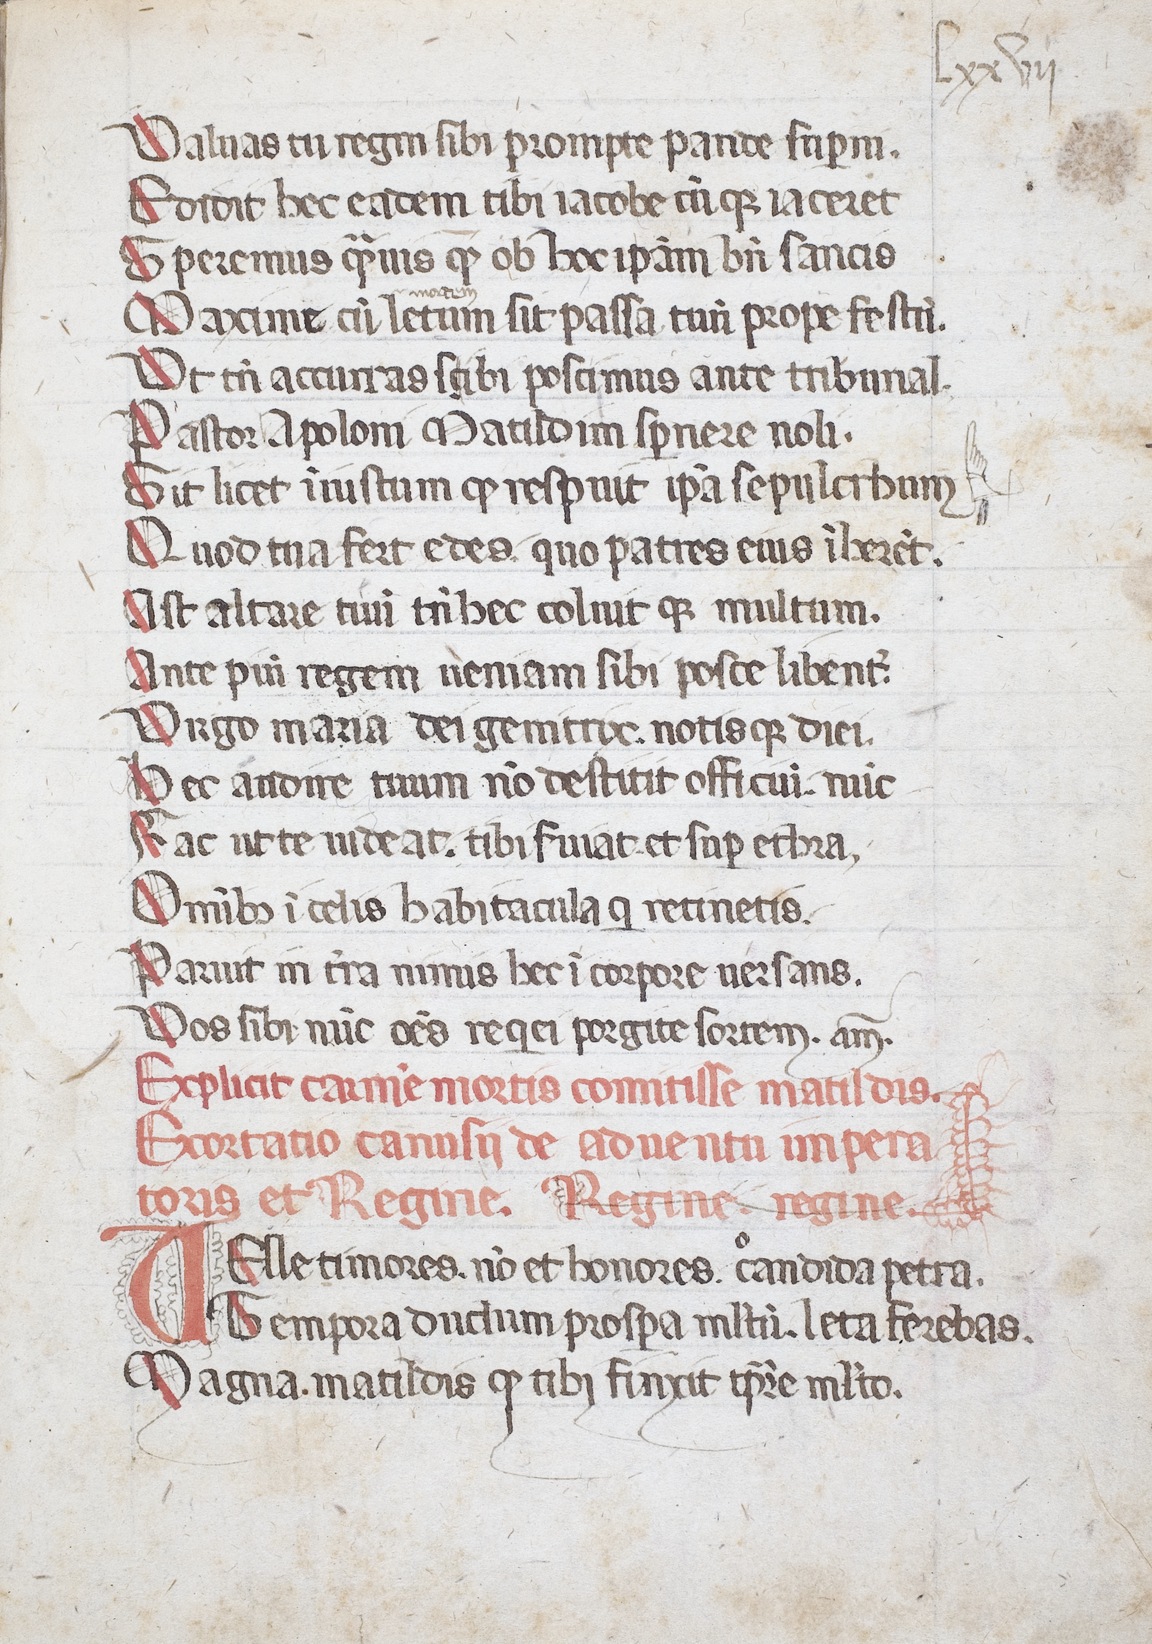 Lxxvij
Valuas tu regni sibi prompte pande sup̲ni.
Edidit hec eadem tibi iacobe cū qꝫ iaceret
Speremus qͣ̄uis qꝫ ob hoc ip̄am bn̄ sancis
mortem
Maxime cū letum sit passa tuū prope festū.
Vt tn̄ accurras sibi poscimus ante tribunal.
Pastor Apoloni Matildim sp̲nere noli.
Sit licet īiustum qꝫ respuit ip̄a sepulcrhum
Quod tua fert edes. quo patres eius īherēt.
Ast altare tuū tn̄ hec coluit qꝫ multum.
Ante piū regem ueniam sibi posce libent᷑.
Virgo maria dei genitrix. notisqꝫ diei.
Hec audire tuum nō destitit officiū. nūc
Fac ut te uideat. tibi s̄uiat et sup̲ ethra,
Omībꝫ ī celis habitacula q̲ retinetis.
Paruit in t̄ra nimis hec ī corpore uersans.
Vos sibi nūc oēs reqei porgite sortem. am̄.
Explicit carmīe mortis comitisse matildis.
Exortatio canusij de aduentu impera
toris et Regine. Regine. regine.
TElle timores. nō et honores. o candida petra.
Tempora duclum prosp̲a mltū. leta ferebas.
Magna. matildis qꝫ tibi finxit tp̄re mlto.